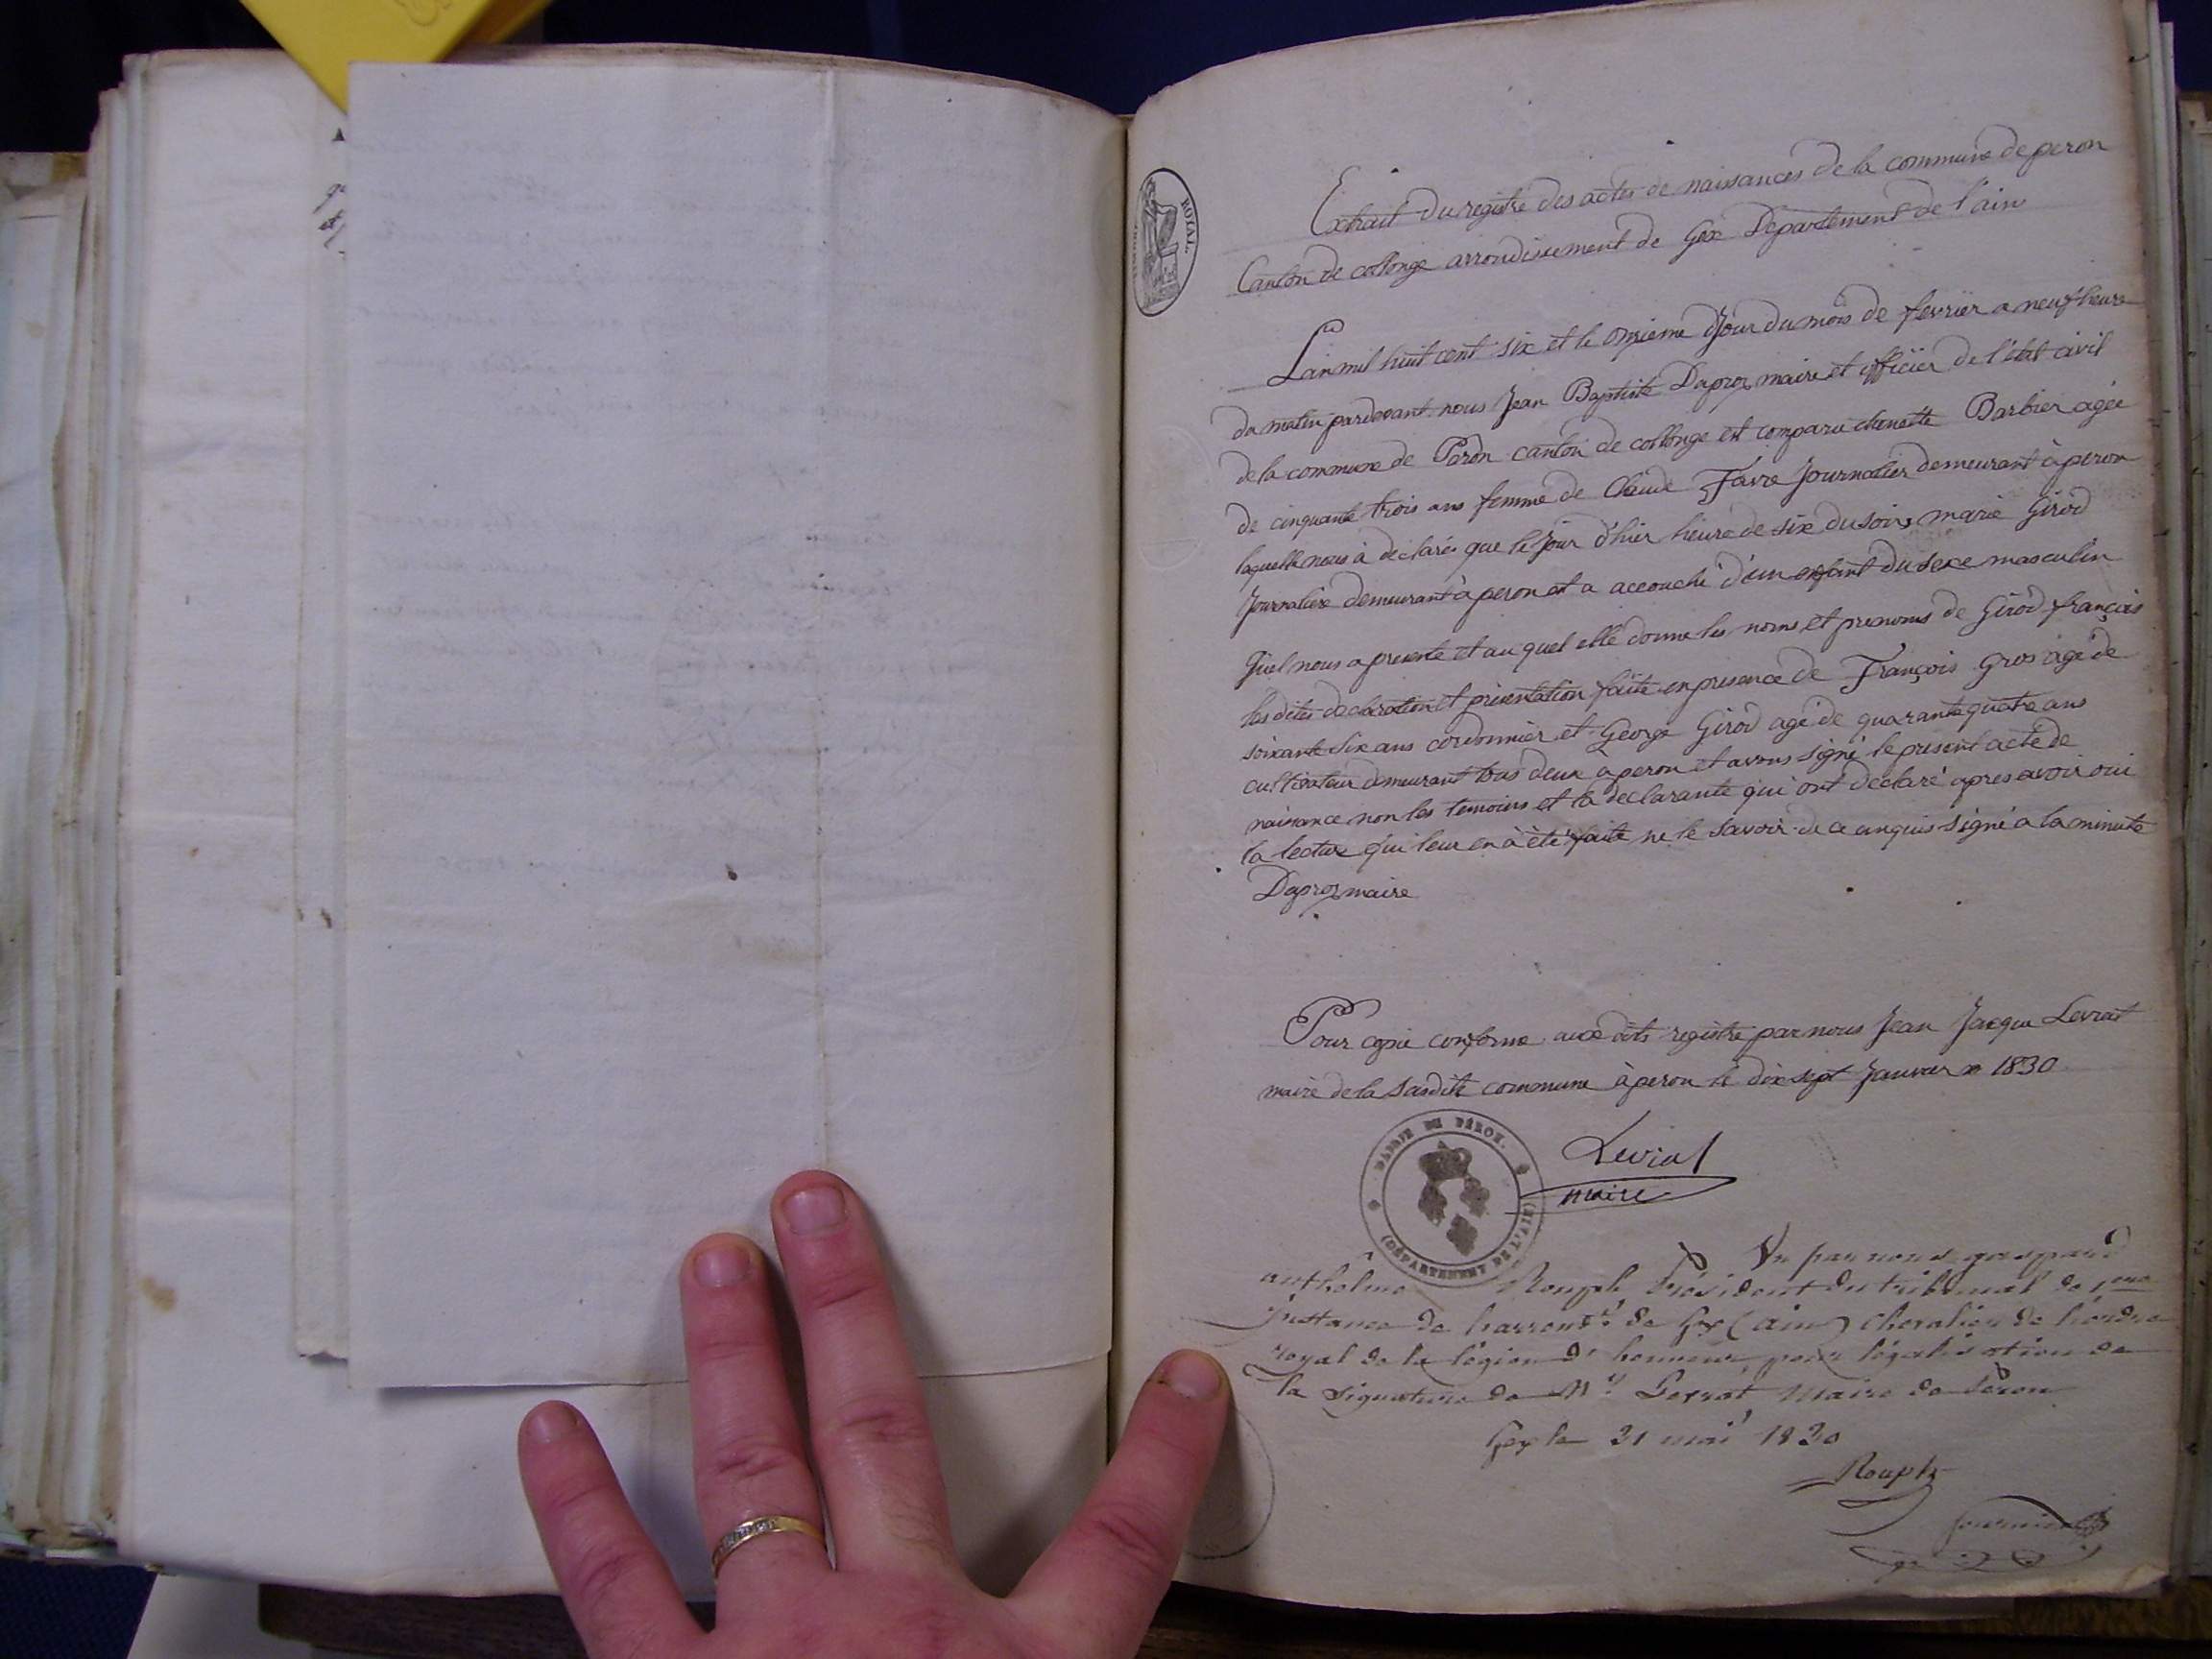 ROYAL.
Extrait du registre des actes de naissances de la commune de peron
Canton de collonge arrondissement de Gex Departement de l'ain
L'an mil huit cent six et le onzieme Jour du mois de fevrier a neuf heure
du matin pardevant nous Jean Baptiste Daproz maire et officier de l'état civil
de la commune de Paron canton de collonge est comparu etienette Barbier agée
de cinquante trois ans femme de Claude Favre Journalier demeurant à peron
laquelle nous à déclaré que le Jour d'hier heure de six du soir, marie Girod
Journaliere demeurant à peron et a accouché d'un enfant du sexe masculin
qu'el nous a presenté et au quel elle donne les noms et prenoms de Girod françois
les dites declaration et présentation faite en presence de François Gros agé de
soixante six ans cordonnier et George Girod agé de quarante quatre ans
cultivateur demeurant tous deux a peron et avons signé le present acte de
naissance non les temoins et la declarante qui ont déclaré apres avoir oui
la lecture qui leur en à été faite ne le savoir de ce enquis signé a la minute
Daproz maire
Pour copie conforme aux dits registre par nous Jean Jacque Levrat
maire de la susdite commune à peron le dix sept Janvier 1830
MAIRIE DE PÉRON.
(DÉPARTEMENT DE L'AIN)
Levrat
maire
Vu par nous gaspard
anthelme Rouph Président du tribunal de 1ere
instance de l'arrondt. de Gex (ain) chevalier de l'ordre
royal de la légion d'honneur, pour légalisation de
la signature de Mr. Levrat Maire de Péron
Gex le 31 mai 1830
Rouph
fournier